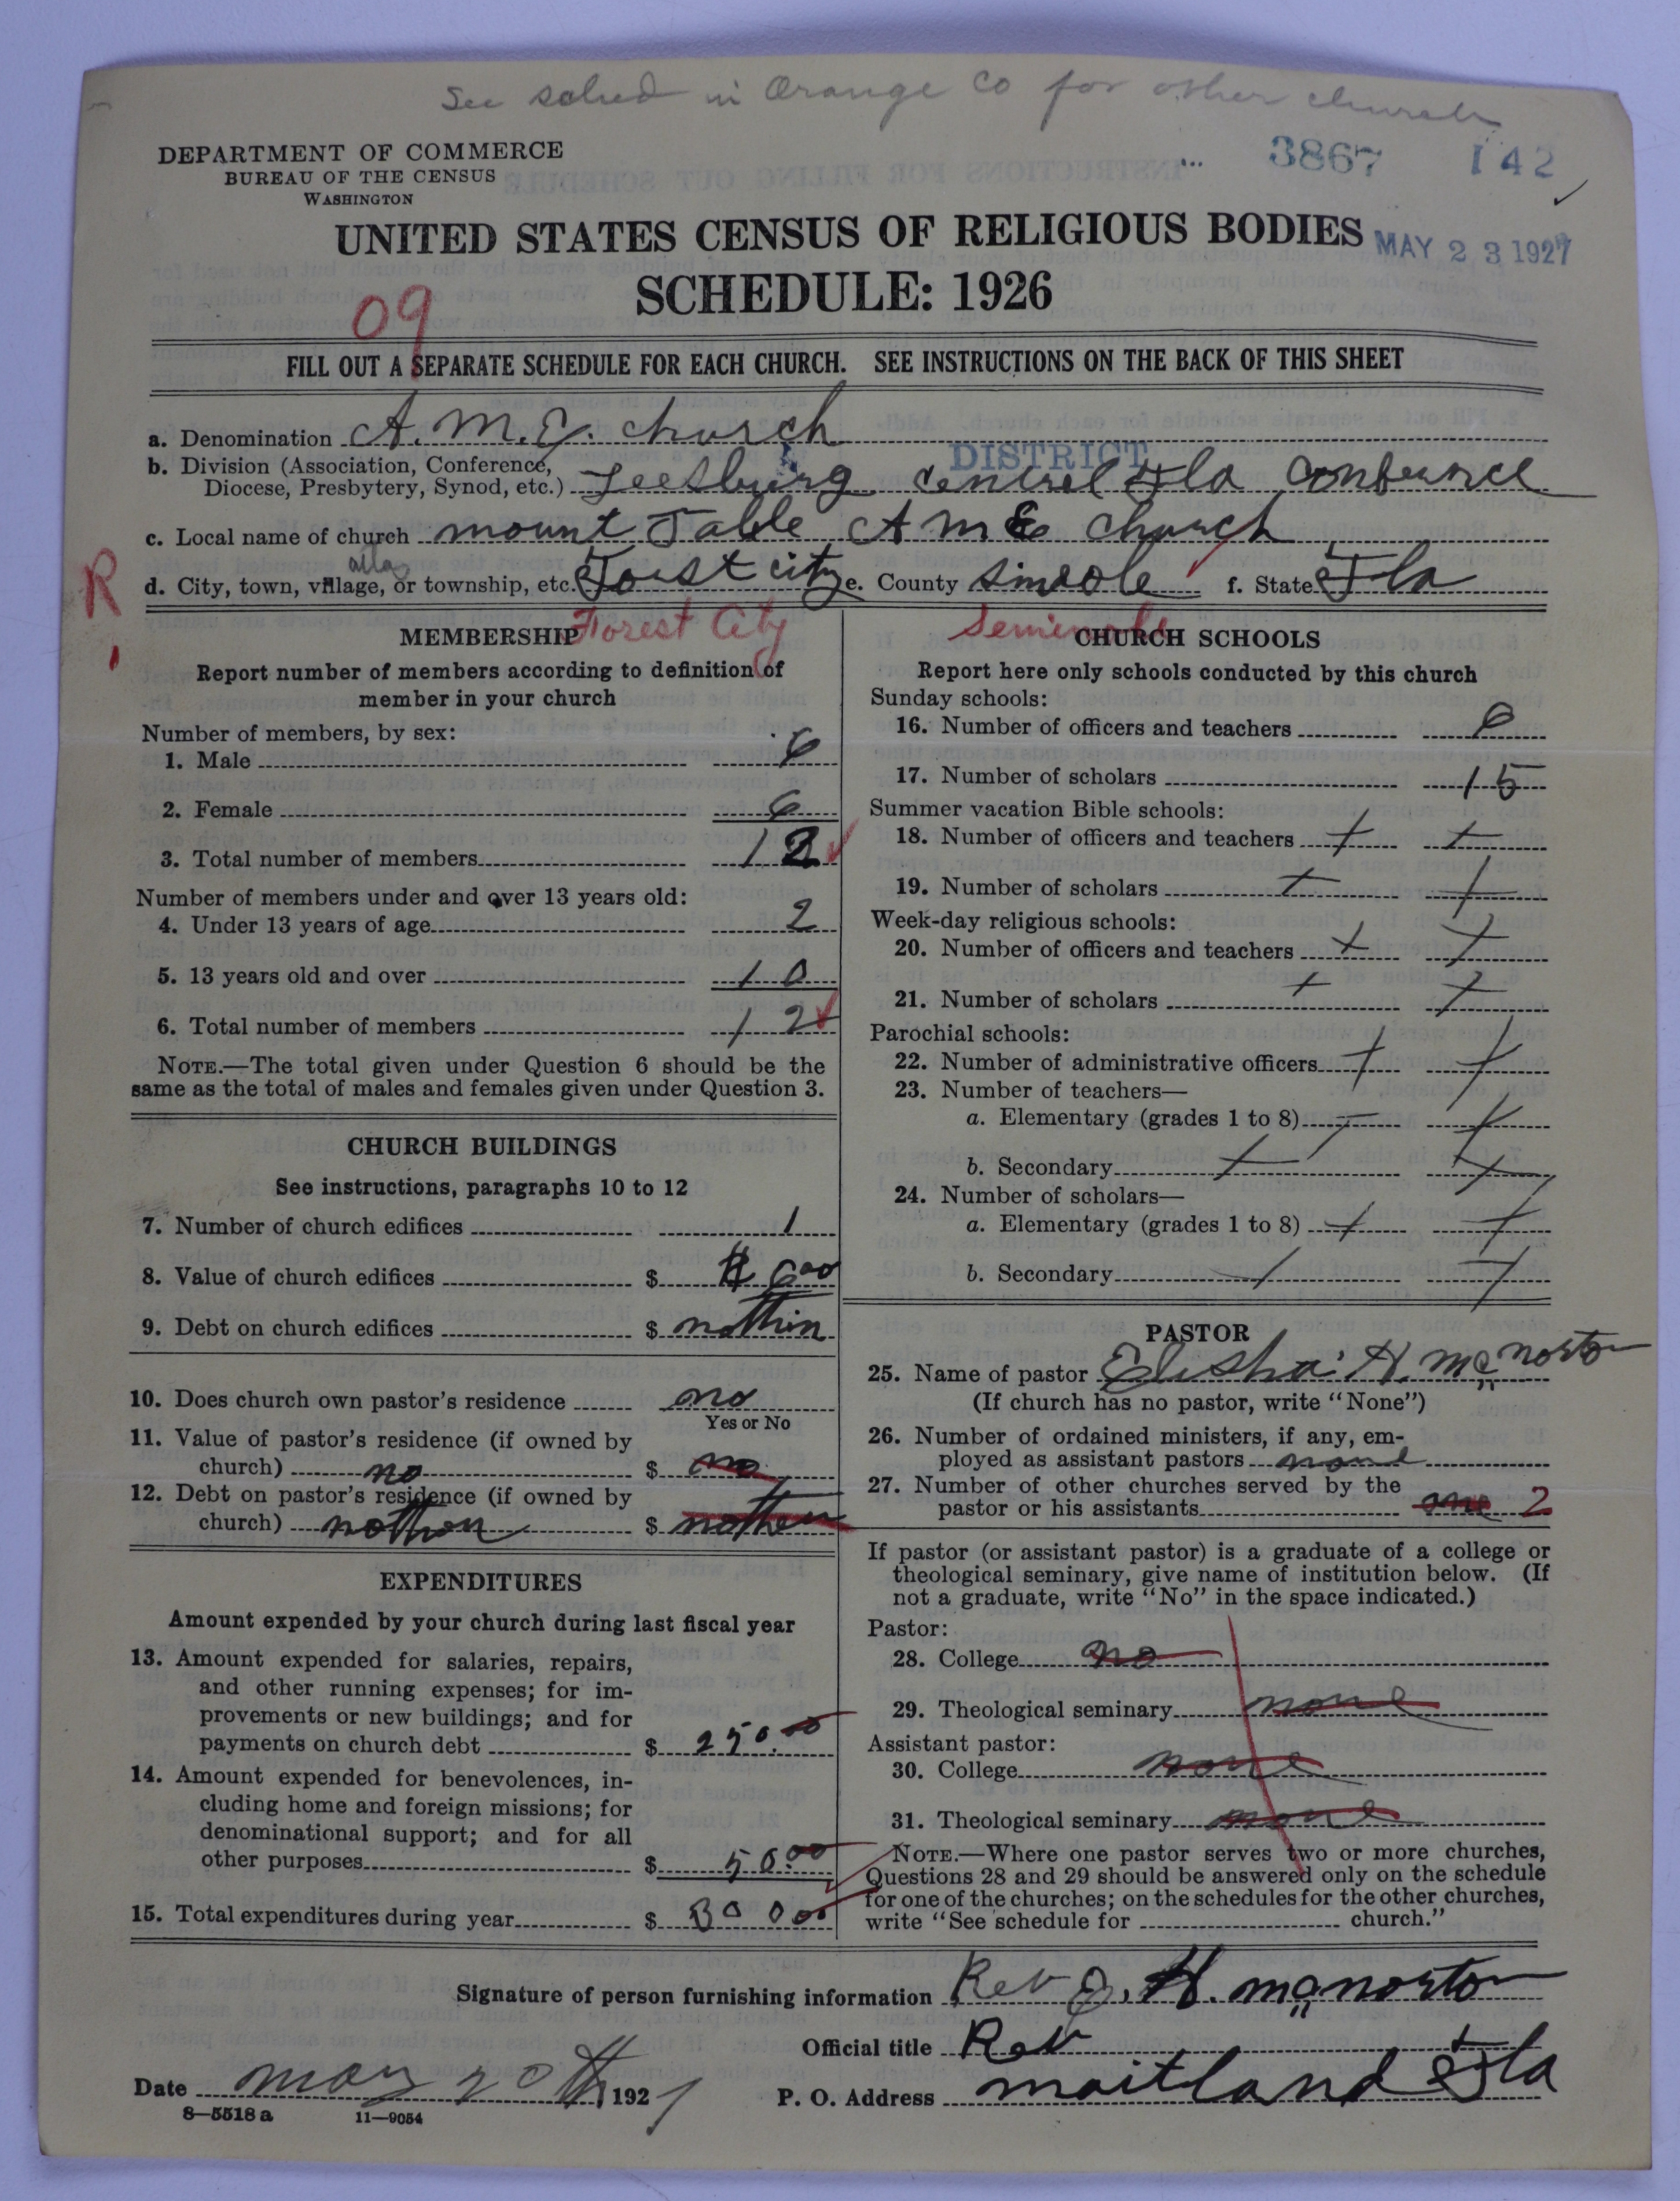 See sched in Orange Co for other church
DEPARTMENT OF COMMERCE
BUREAU OF THE CENSUS
WASHINGTON
3867 142
UNITED STATES CENSUS OF RELIGIOUS BODIES
MAY 23 1927
SCHEDULE: 1926
09
FILL OUT A SEPARATE SCHEDULE FOR EACH CHURCH. SEE INSTRUCTIONS ON THE BACK OF THIS SHEET
a. Denomination A.M.E. church
DISTRICT
b. Division (Association, Conference,
Diocese, Presbytery, Synod, etc.) Leesburg Centrel Fla Confernce
c. Local name of church mount Table A M E Church
R
d. City, town, village, or township, etc. Forst city e. County Sinaole f. State Fla
Forest City Seminole
MEMBERSHIP
Report number of members according to definition of
member in your church
Number of members, by sex:
1. Male 6
2. Female 6
3. Total number of members 12
Number of members under and over 13 years old:
4. Under 13 years of age 2
5. 13 years old and over 10
6. Total number of members 12
NOTE.—The total given under Question 6 should be the
same as the total of males and females given under Question 3.
CHURCH BUILDINGS
See instructions, paragraphs 10 to 12
7. Number of church edifices 1
8. Value of church edifices $ $ 600
9. Debt on church edifices $ nothin
10. Does church own pastor's residence no
Yes or No
11. Value of pastor's residence (if owned by
church) no $ no
12. Debt on pastor's residence (if owned by
church) nothon $ nothen
EXPENDITURES
Amount expended by your church during last fiscal year
13. Amount expended for salaries, repairs,
and other running expenses; for im-
provements or new buildings; and for
payments on church debt $ 250.00
14. Amount expended for benevolences, in-
cluding home and foreign missions; for
denominational support; and for all
other purposes $ 50.00
15. Total expenditures during year $ 300 00
CHURCH SCHOOLS
Report here only schools conducted by this church
Sunday schools:
16. Number of officers and teachers 6
17. Number of scholars 15
Summer vacation Bible schools:
18. Number of officers and teachers
19. Number of scholars
Week-day religious schools:
20. Number of officers and teachers
21. Number of scholars
Parochial schools:
22. Number of administrative officers
23. Number of teachers—
a. Elementary (grades 1 to 8)
b. Secondary
24. Number of scholars—
a. Elementary (grades 1 to 8)
b. Secondary
PASTOR
25. Name of pastor Elisha H. McNorton
(If church has no pastor, write "None")
26. Number of ordained ministers, if any, em-
ployed as assistant pastors none
27. Number of other churches served by the
pastor or his assistants one 2
If pastor (or assistant pastor) is a graduate of a college or
theological seminary, give name of institution below. (If
not a graduate, write "No" in the space indicated.)
Pastor:
28. College no
29. Theological seminary none
Assistant pastor:
30. College none
31. Theological seminary none
NOTE.—Where one pastor serves two or more churches,
Questions 28 and 29 should be answered only on the schedule
for one of the churches; on the schedules for the other churches,
write "See schedule for church."
Signature of person furnishing information Rev E. H. McNorton
Official title Rev
Date may 20th, 1927 P. O. Address maitland Fla
8—5518a 11—9054